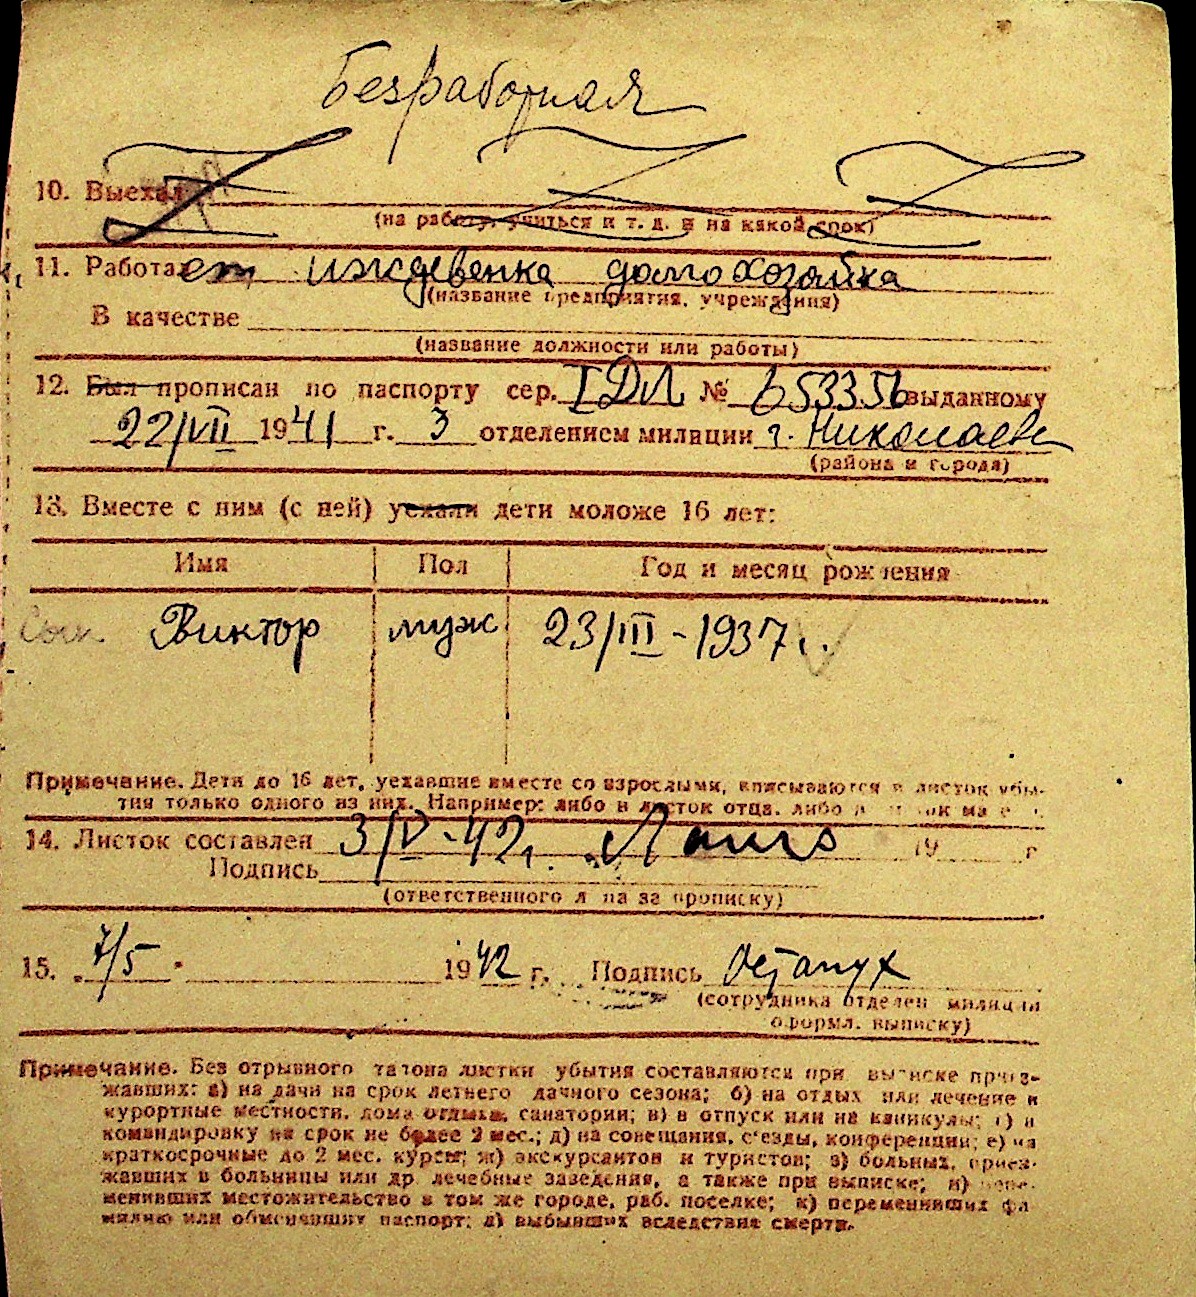 Безработная
10. Выехал
(на работу, учиться и т. д. и на какой срок)
11. Работает иждевенка домохозайка
(название предприятия, учреждения)
В качестве
(название должности или работы)
12. Был прописан по паспорту сер. I ДЛ № 653356 выданному
22/VII 1941 г. 3 отделением милиции г. Николаев
(района и города)
13. Вместе с ним (с ней) уехали дети моложе 16 лет:
Имя Пол Год и месяц рождения
Сын Виктор муж 23/III-1937 г.
Примечание. Дети до 16 лет, уехавшие вместе со взрослыми, вписываются в листок убы-
тия только одного из них. Например: либо в листок отца, либо в листок матери.
14. Листок составлен 3/V-42 г. 19 г
Подпись
(ответственного лица за прописку)
15. 7/5 1942 г. Подпись
(сотрудника отделен милиции
оформл. выписку)
Примечание. Без отрывного талона листки убытия составляются при выписке приез-
жавших: а) на дачи на срок летнего дачного сезона; б) на отдых или лечение в
курортные местности, дома отдыха, санатории; в) в отпуск или на каникулы; г) в
командировку на срок не более 2 мес.; д) на совещания, съезды, конференции; е) на
краткосрочные до 2 мес. курсы; ж) экскурсантов и туристов; з) больных, приез-
жавших в больницы или др. лечебные заведения, а также при выписке; и) пере-
менивших местожительство в том же городе, раб. поселке; к) переменивших фа
милию или обменявших паспорт; л) выбывших вследствие смерти.